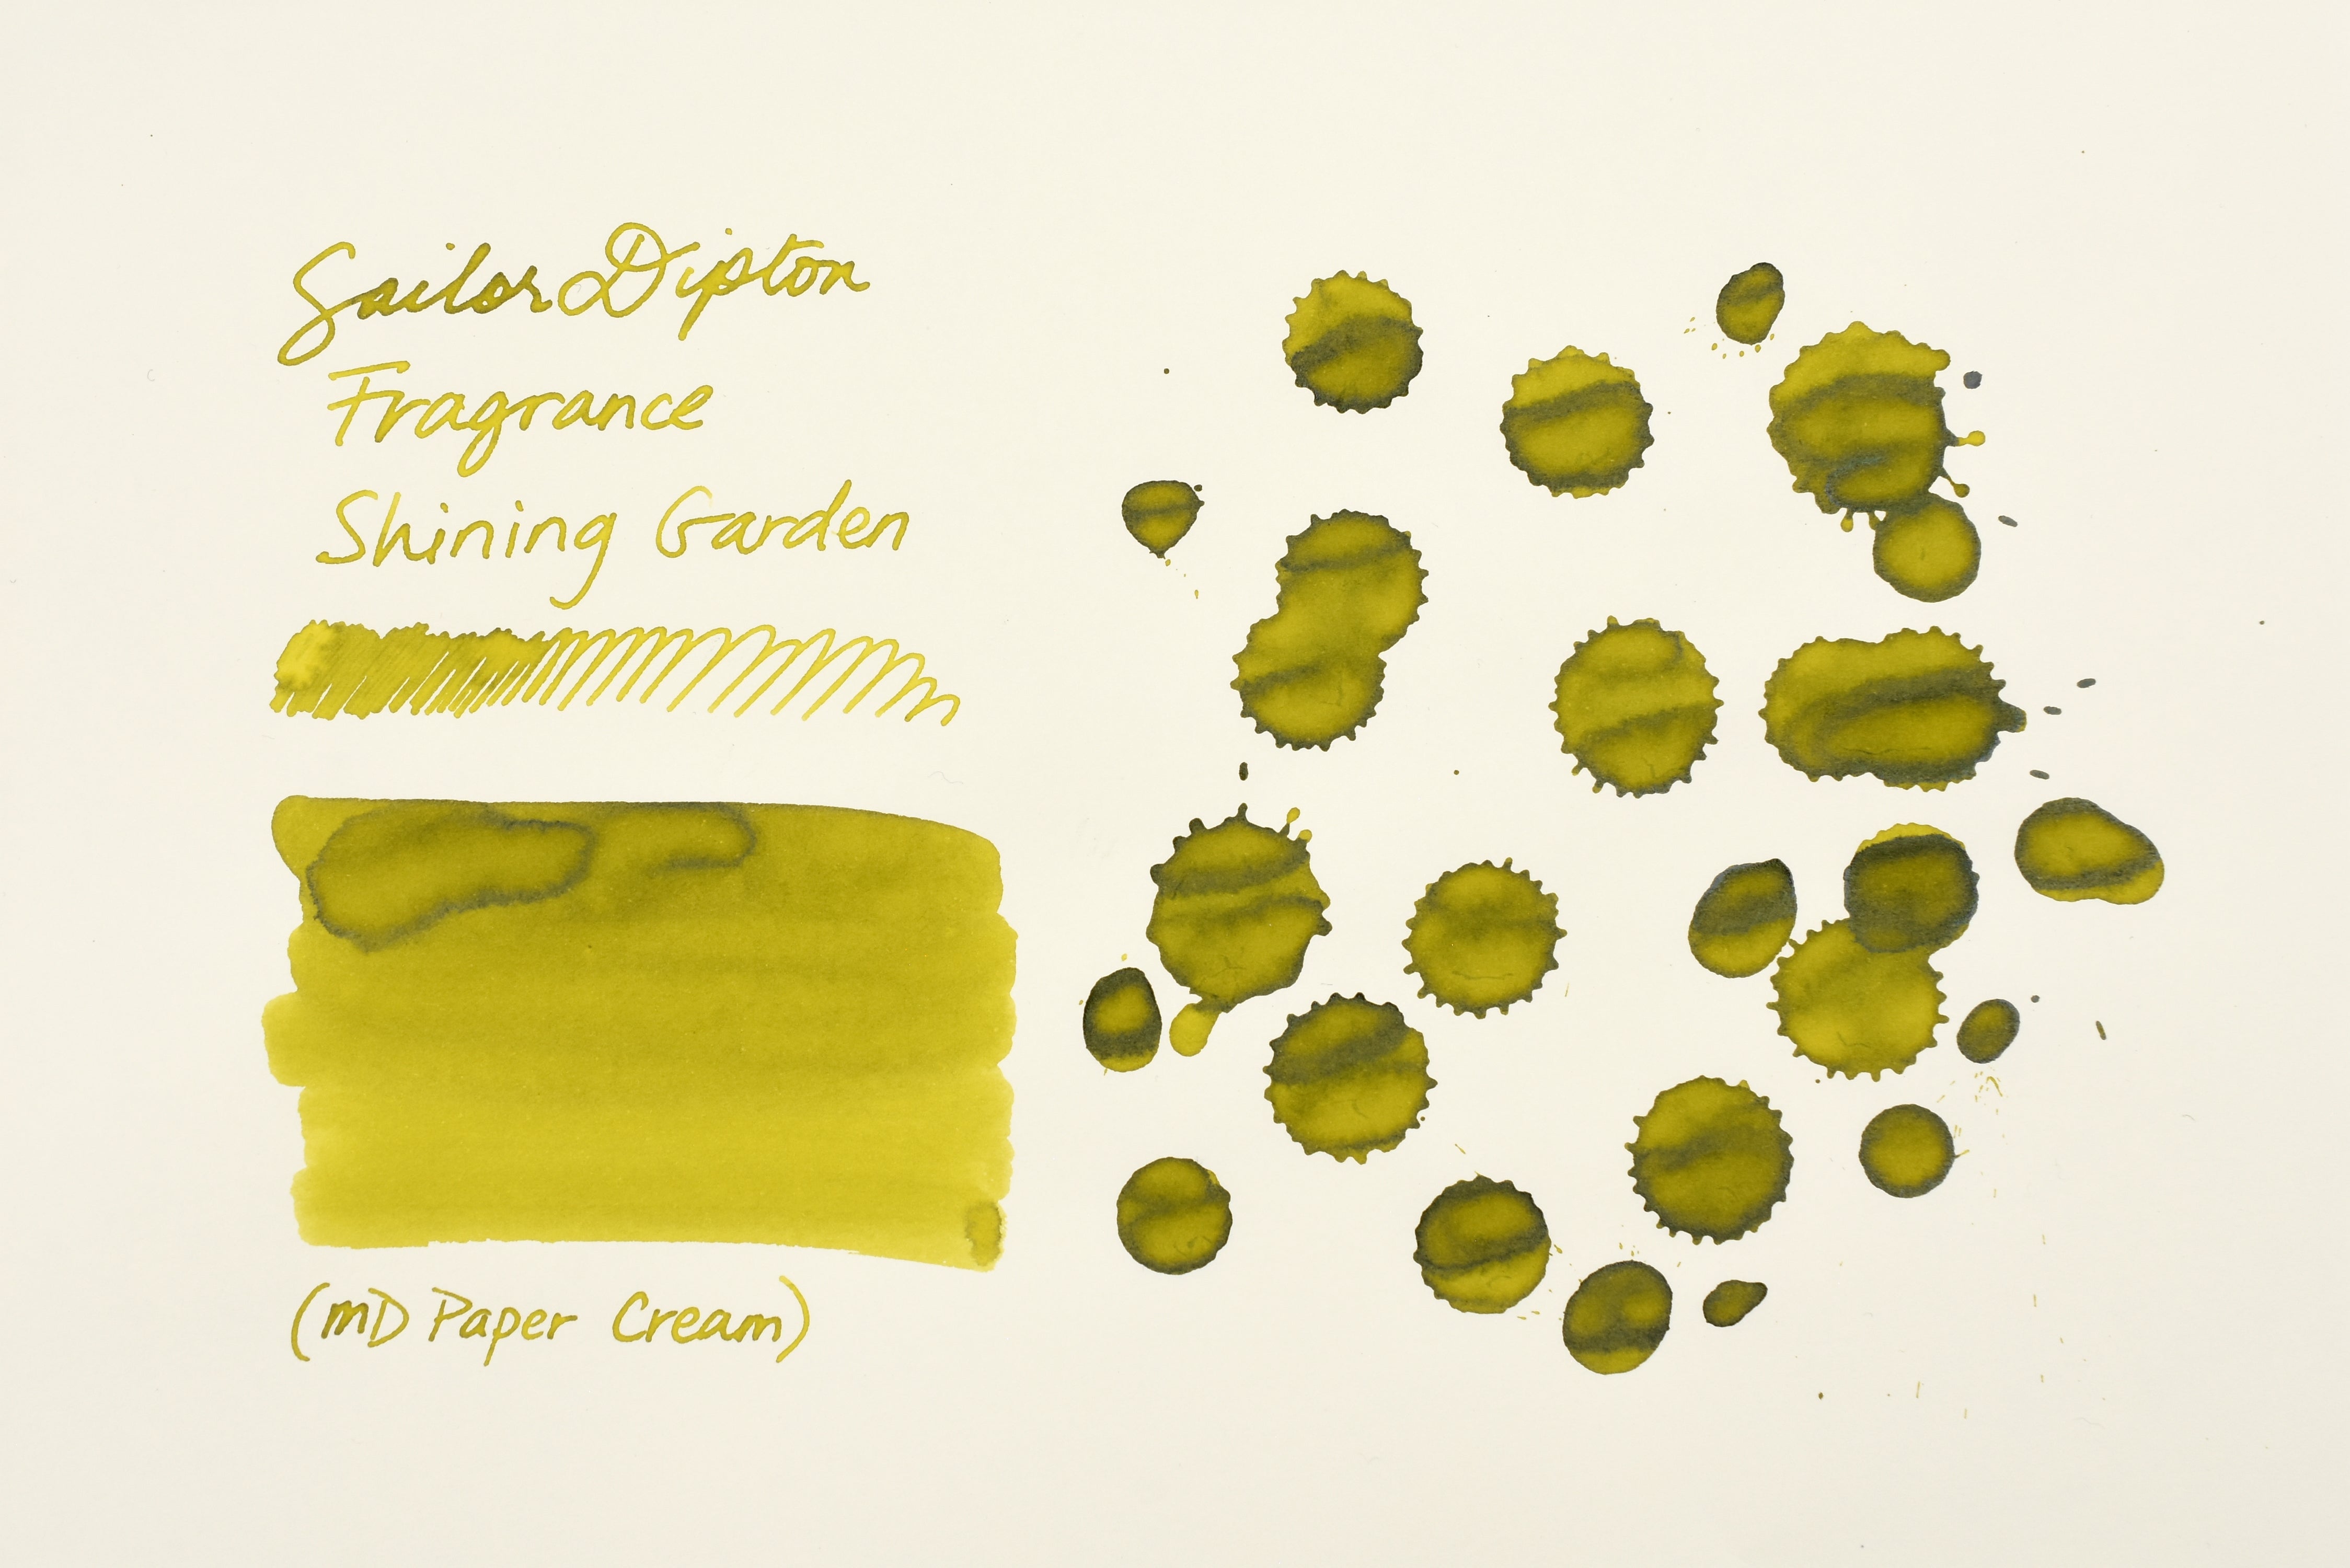 Sailor Dipton
Fragrance
Shining Garden
(MD Paper Cream)